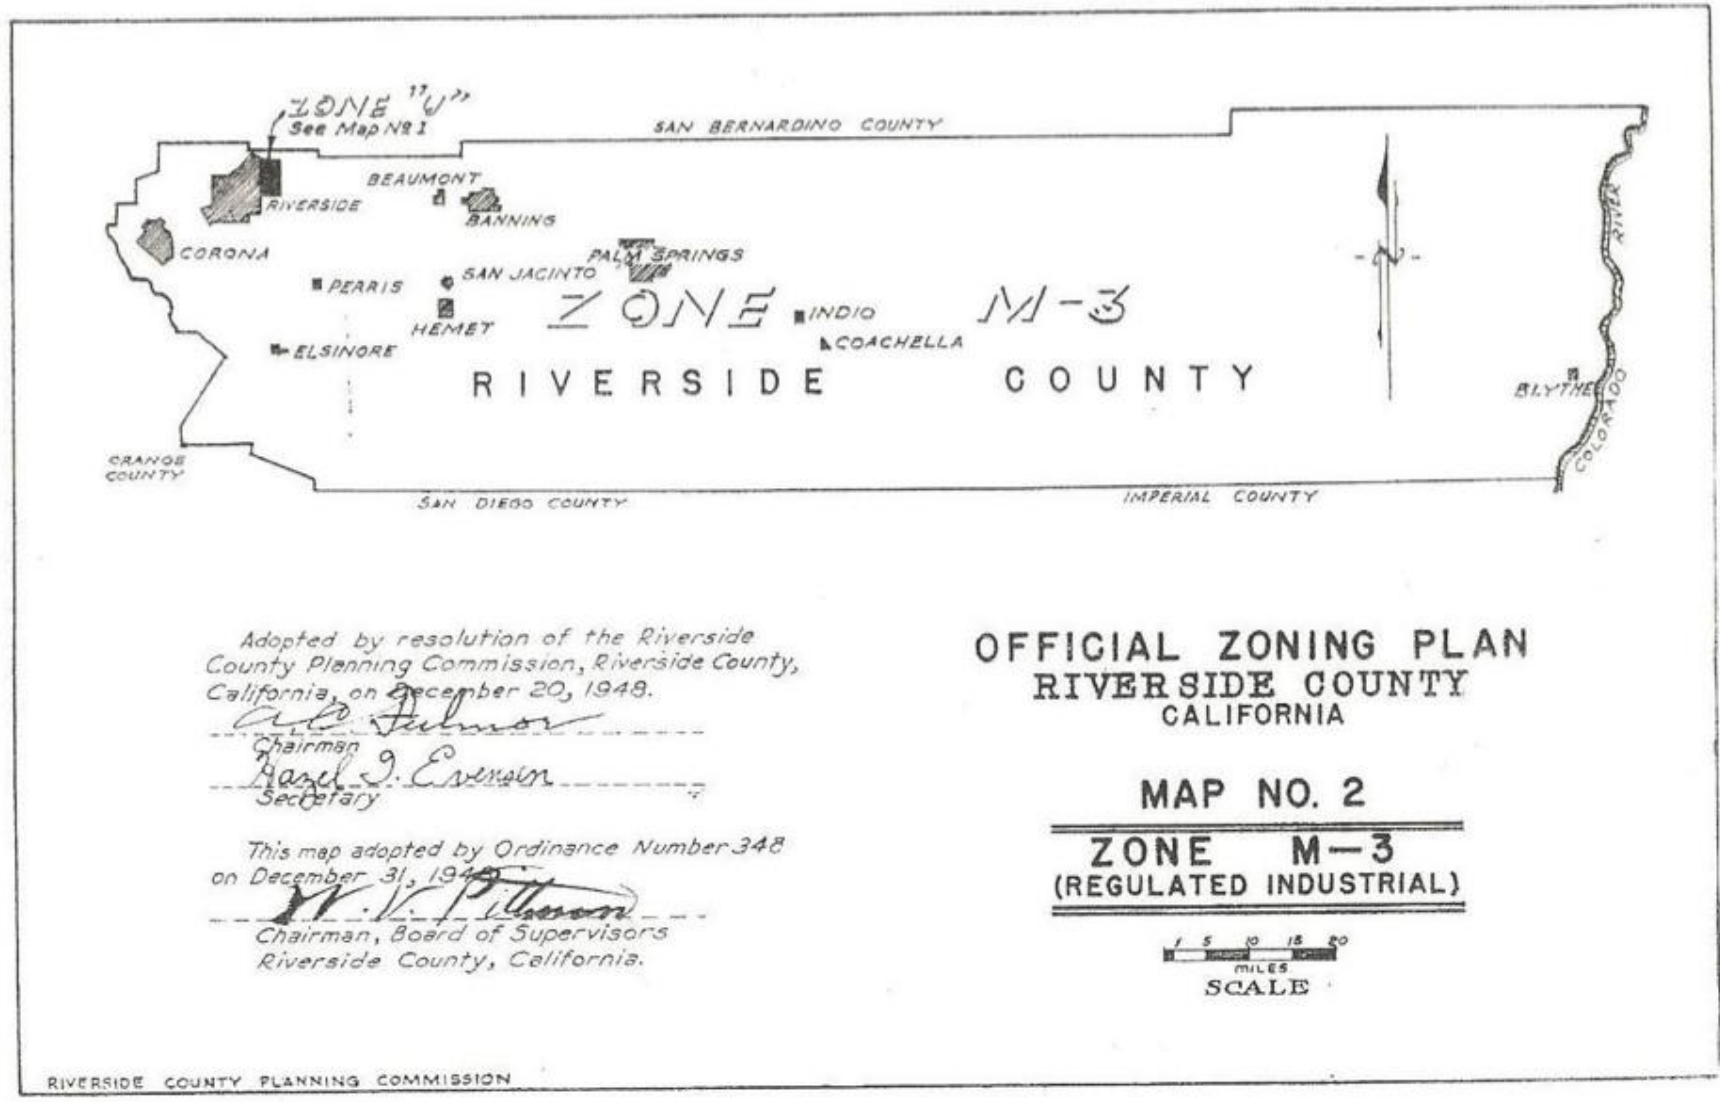 ZONE "U"
See Map Nº 1
SAN BERNARDINO COUNTY
BEAUMONT
RIVERSIDE
BANNING
RIVER
CORONA
PALM SPRINGS
PERRIS
SAN JACINTO
ZONE M-3
INDIO
HEMET
COACHELLA
ELSINORE
RIVERSIDE COUNTY
BLYTHE
COLORADO
ORANGE
COUNTY
SAN DIEGO COUNTY
IMPERIAL COUNTY
N
Adopted by resolution of the Riverside
County Planning Commission, Riverside County,
California, on December 20, 1948.
A.C. Fulmor
Chairman
Hazel I. Evensen
Secretary
This map adopted by Ordinance Number 348
on December 31, 1948
W. V. Pittman
Chairman, Board of Supervisors
Riverside County, California.
OFFICIAL ZONING PLAN
RIVERSIDE COUNTY
CALIFORNIA
MAP NO. 2
ZONE M-3
(REGULATED INDUSTRIAL)
1 5 10 15 20
MILES
SCALE
RIVERSIDE COUNTY PLANNING COMMISSION